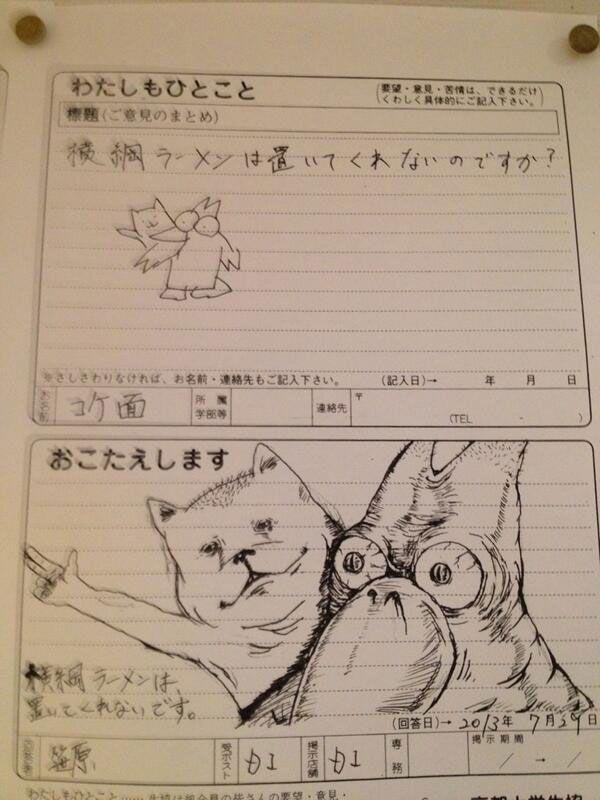 わたしもひとこと
(要望・意見・苦情は、できるだけ
くわしく具体的にご記入下さい。)
標題(ご意見のまとめ)
横綱ラーメンは置いてくれないのですか?
※さしさわりなければ、お名前・連絡先もご記入下さい。 (記入日)→ 年 月 日
お名前 コケ面 所属 学部等 連絡先 〒
(TEL - )
おこたえします
横綱ラーメンは、
置いてくれないです。
(回答日)→ 2013年 7月29日
回答者 笹原 受ポスト カエ 掲示店舗 カエ 専務 掲示期間
/ → /